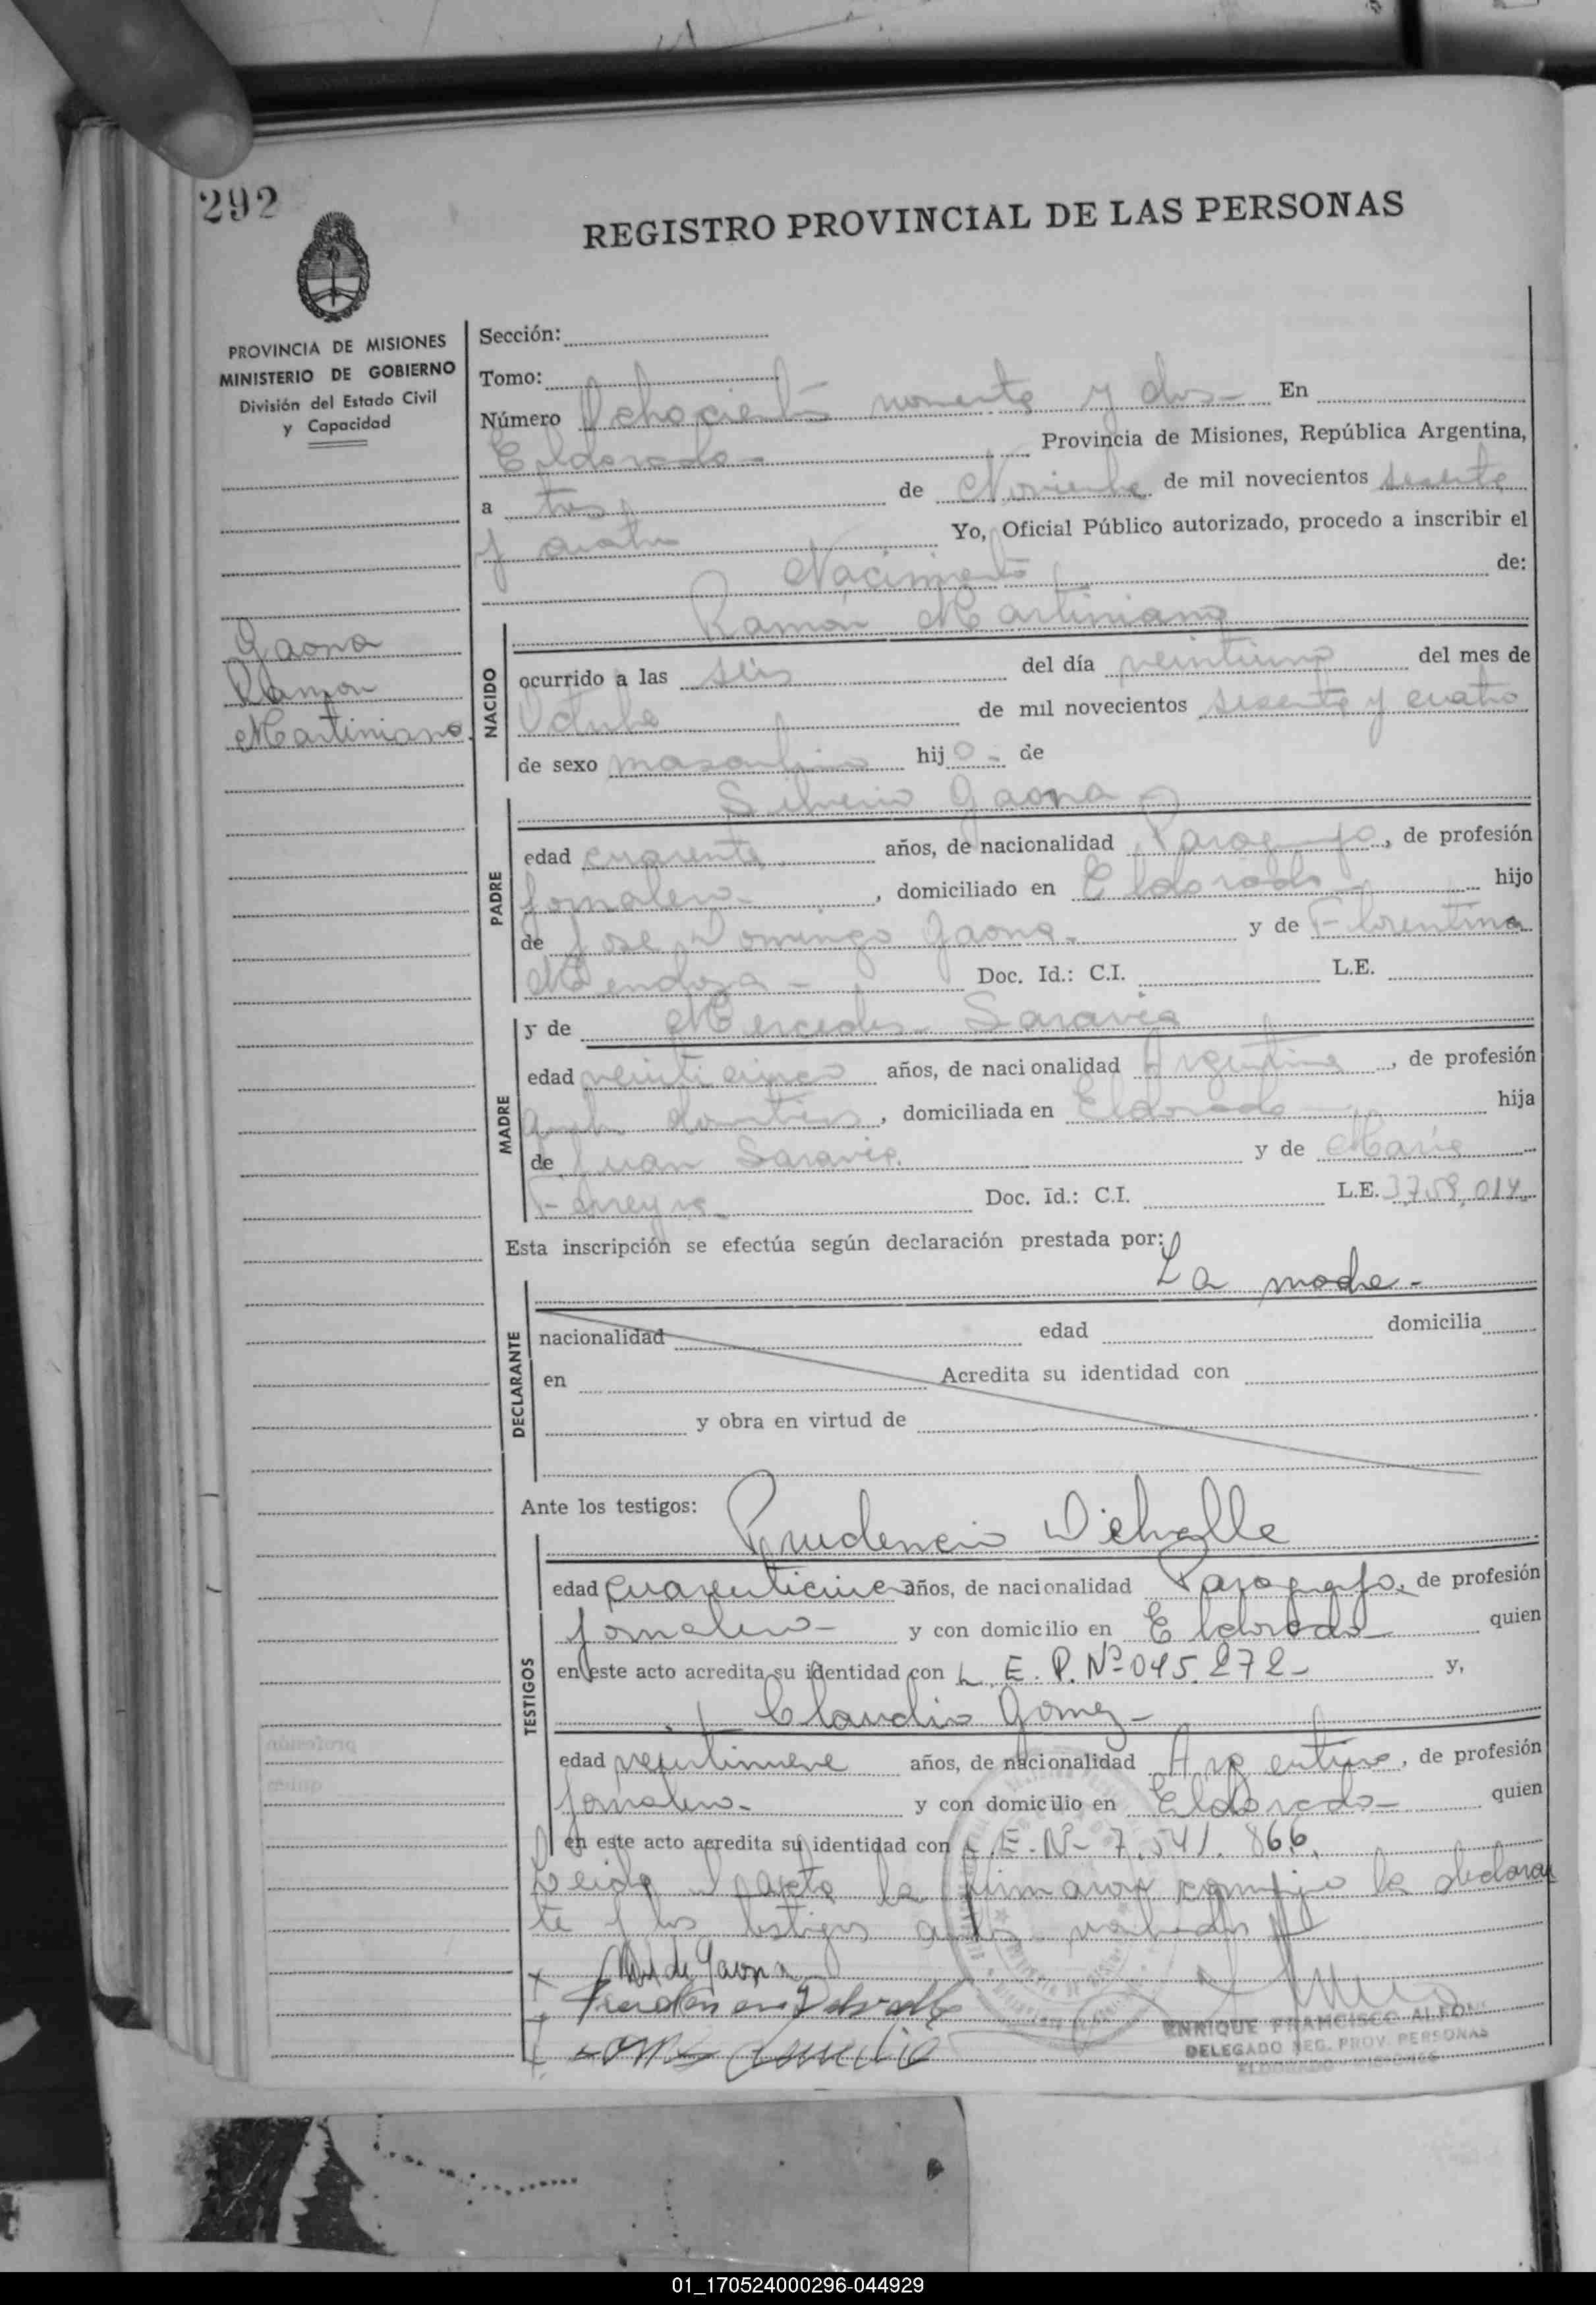 292
REGISTRO PROVINCIAL DE LAS PERSONAS
PROVINCIA DE MISIONES
MINISTERIO DE GOBIERNO
División del Estado Civil
y Capacidad
Gaona
Ramon
Martiniano
Sección:
Tomo:
Número Ochocientos noventa y dos- En
Eldorado- Provincia de Misiones, República Argentina,
a tres de Noviembre de mil novecientos sesenta
y cuatro Yo, Oficial Público autorizado, procedo a inscribir el
Nacimiento de:
Ramón Martiniano
NACIDO
ocurrido a las seis del día veintiuno del mes de
Octubre de mil novecientos sesenta y cuatro
de sexo masculino hijo- de
Silverio Gaona
PADRE
edad cuarenta años, de nacionalidad Paraguayo, de profesión
jornalero- , domiciliado en Eldorado- hijo
de José Domingo Gaona- y de Florentina
Mendoza- Doc. Id.: C.I. L.E.
MADRE
y de Mercedes Saravia
edad veinticinco años, de nacionalidad Argentina, de profesión
domiciliada en Eldorado- hija
de Juan Saravia. y de María
Ferreyra- Doc. Id.: C.I. L.E. 3.758.014
Esta inscripción se efectúa según declaración prestada por:
La madre-
DECLARANTE
nacionalidad edad domicilia
en Acredita su identidad con
y obra en virtud de
Ante los testigos:
Prudencio Delvalle
TESTIGOS
edad cuarenticinco años, de nacionalidad Paraguayo, de profesión
jornalero- y con domicilio en Eldorado- quien
en este acto acredita su identidad con L.E.P. Nº 045.272- y,
Claudio Gomez-
edad veintinueve años, de nacionalidad Argentino, de profesión
jornalero- y con domicilio en Eldorado- quien
en este acto acredita su identidad con L.E. Nº 7.541.866.
Leida el acta la firmaron conmigo la declaran
te y los testigos antes nombrados
de Gaona
Prudencio Delvalle
ENRIQUE FRANCISCO ALFONS
DELEGADO REG. PROV. PERSONAS
ELDORADO - MISIONES
01_170524000296-044929